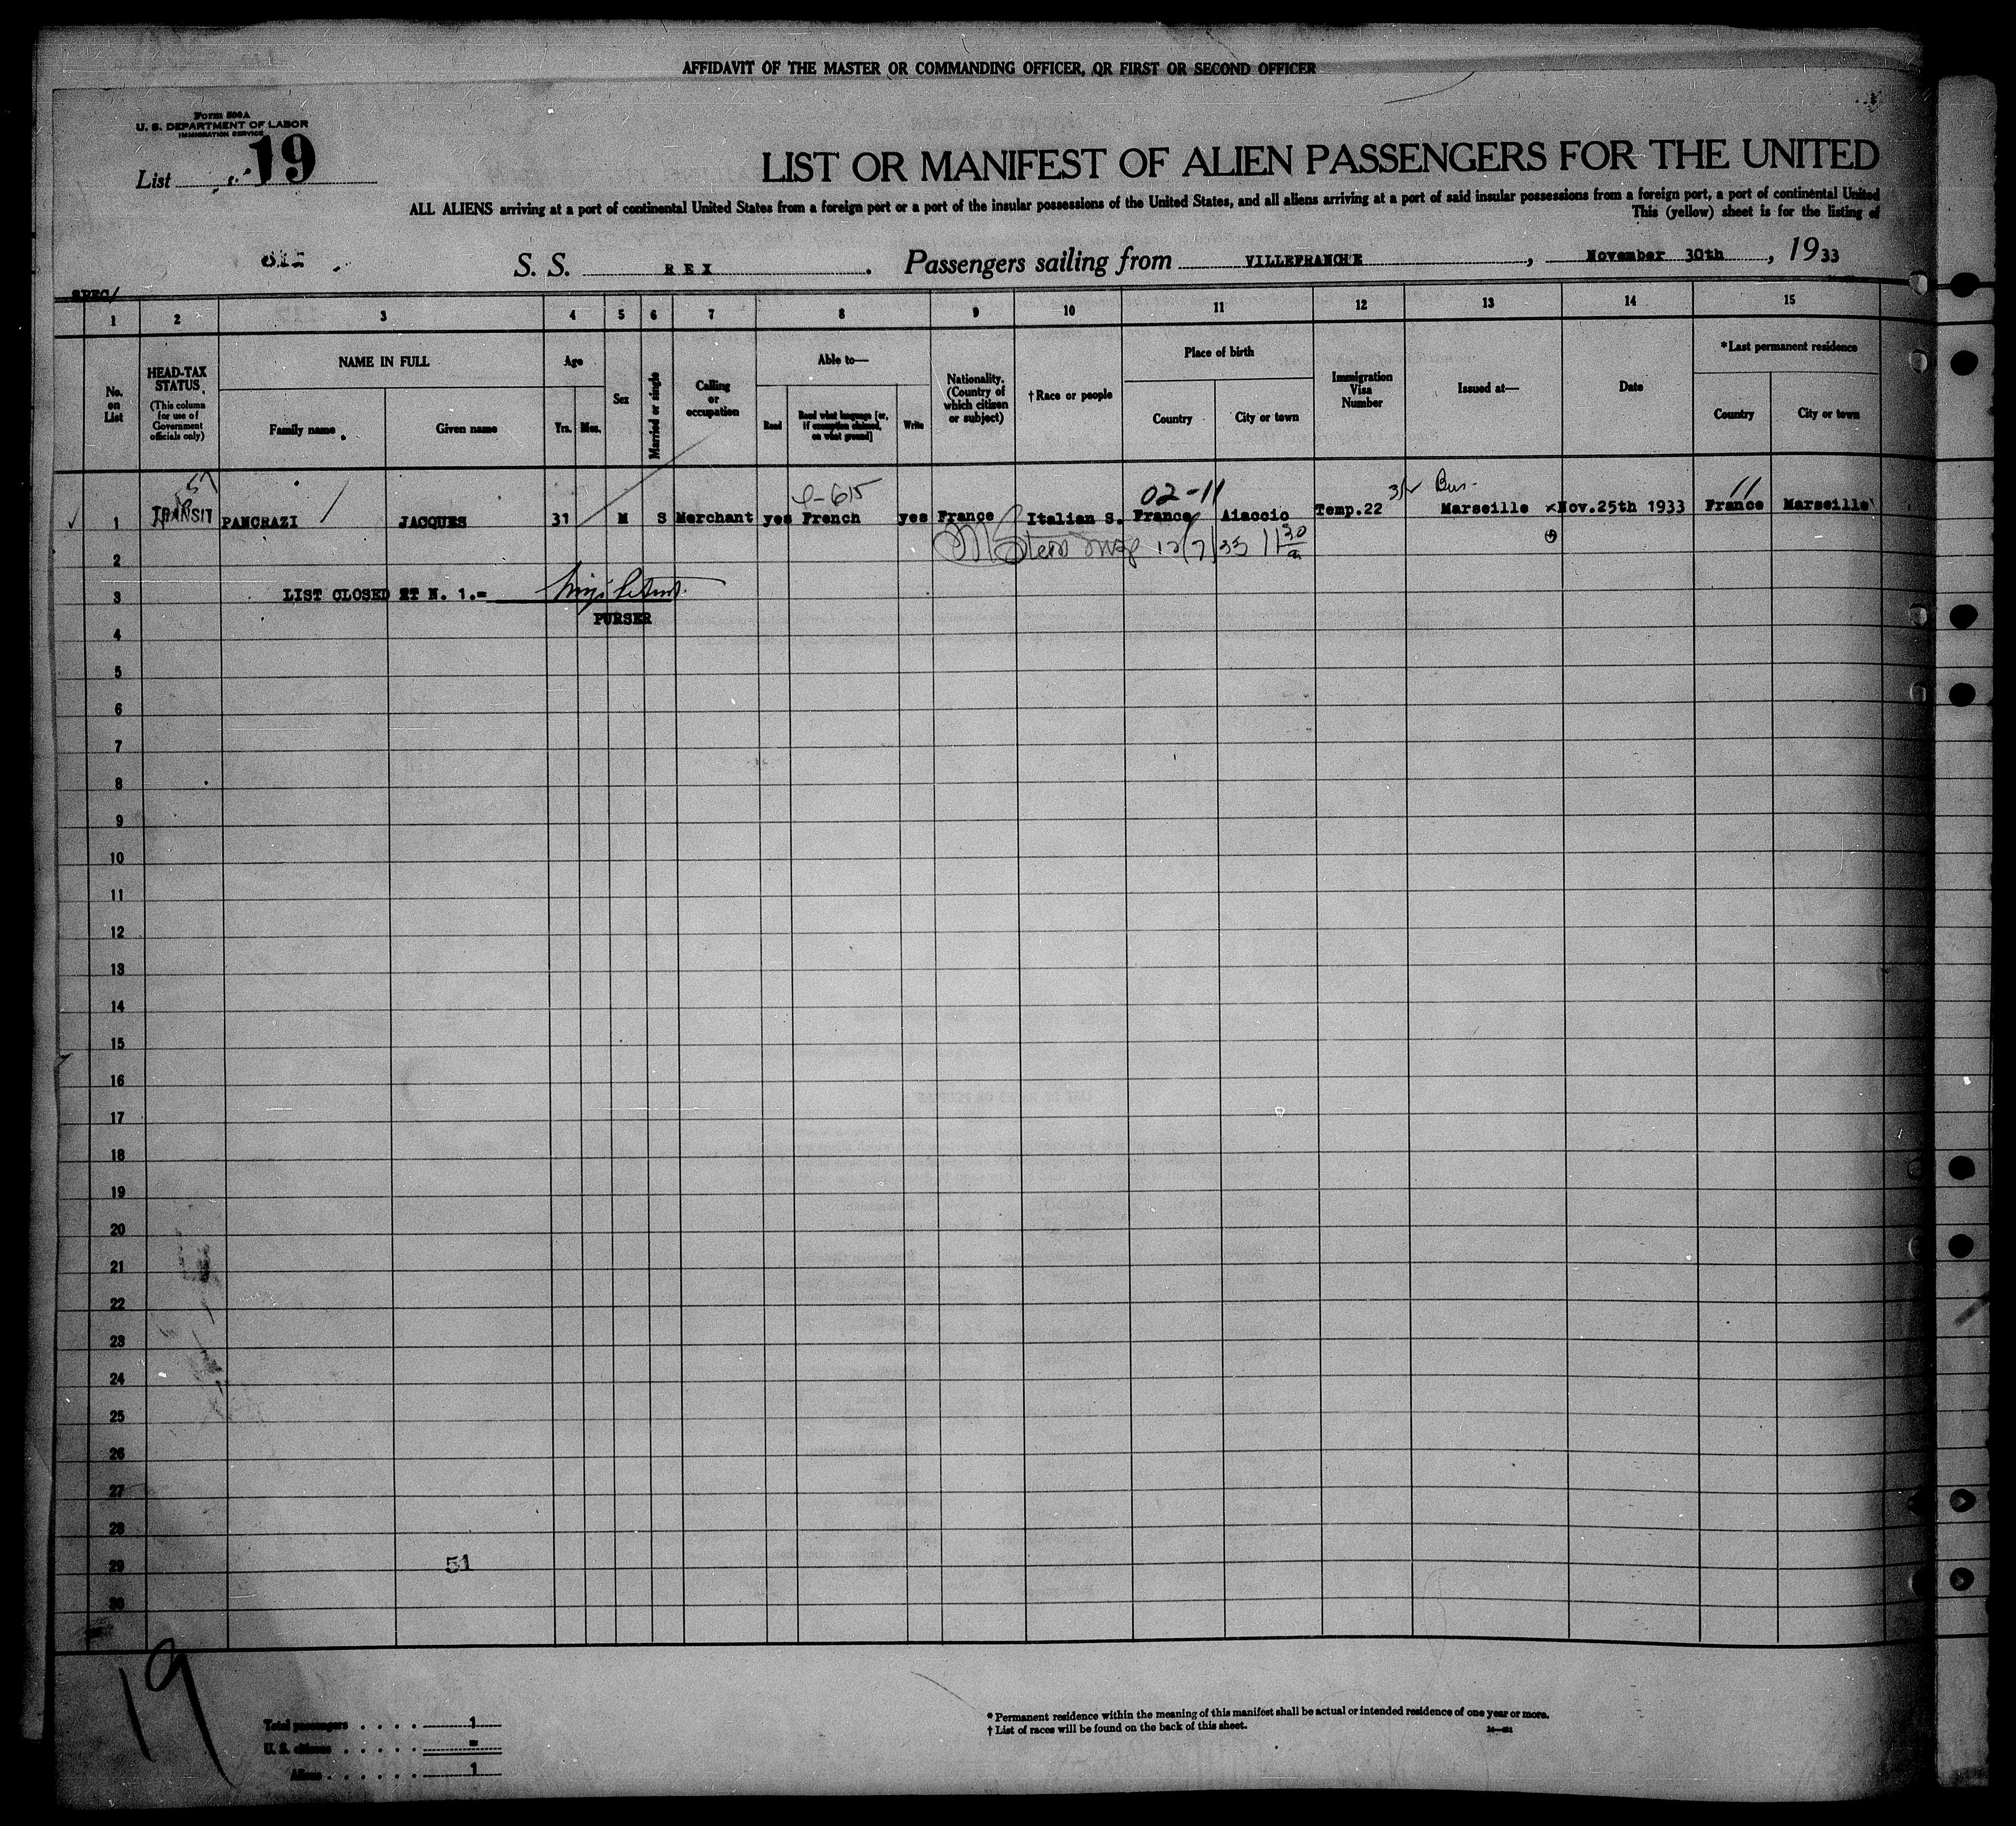 AFFIDAVIT OF THE MASTER OR COMMANDING OFFICER, OR FIRST OR SECOND OFFICER
Form 500A
U. S. DEPARTMENT OF LABOR
IMMIGRATION SERVICE
List 19
LIST OR MANIFEST OF ALIEN PASSENGERS FOR THE UNITED
ALL ALIENS arriving at a port of continental United States from a foreign port or a port of the insular possessions of the United States, and all aliens arriving at a port of said insular possessions from a foreign port, a port of continental United
This (yellow) sheet is for the listing of
S. S. REX. Passengers sailing from VILLEFRANCHE, November 30th, 1933
SPEC/
1 2 3 4 5 6 7 8 9 10 11 12 13 14 15
No. on List
HEAD-TAX STATUS (This column for use of Government officials only)
NAME IN FULL
Family name Given name
Age
Yrs. Mos.
Sex
Married or single
Calling or occupation
Able to—
Read Read what language [or, if exemption claimed, on what ground] Write
Nationality. (Country of which citizen or subject)
†Race or people
Place of birth
Country City or town
Immigration Visa Number
Issued at—
Date
*Last permanent residence
Country City or town
02-11 11
1 TRANSIT PANCRAZI JACQUES 31 M S Merchant yes French yes France Italian S. France Aiaccio Temp.22 Marseille Nov.25th 1933 France Marseille
12/7/33 11 30/a
2
3 LIST CLOSED AT N. 1.=
PURSER
4
5
6
7
8
9
10
11
12
13
14
15
16
17
18
19
20
21
22
23
24
25
26
27
28
29 51
30
19
Total passengers . . . . 1
U. S. citizens . . . . . =
Aliens . . . . . . 1
* Permanent residence within the meaning of this manifest shall be actual or intended residence of one year or more.
† List of races will be found on the back of this sheet.